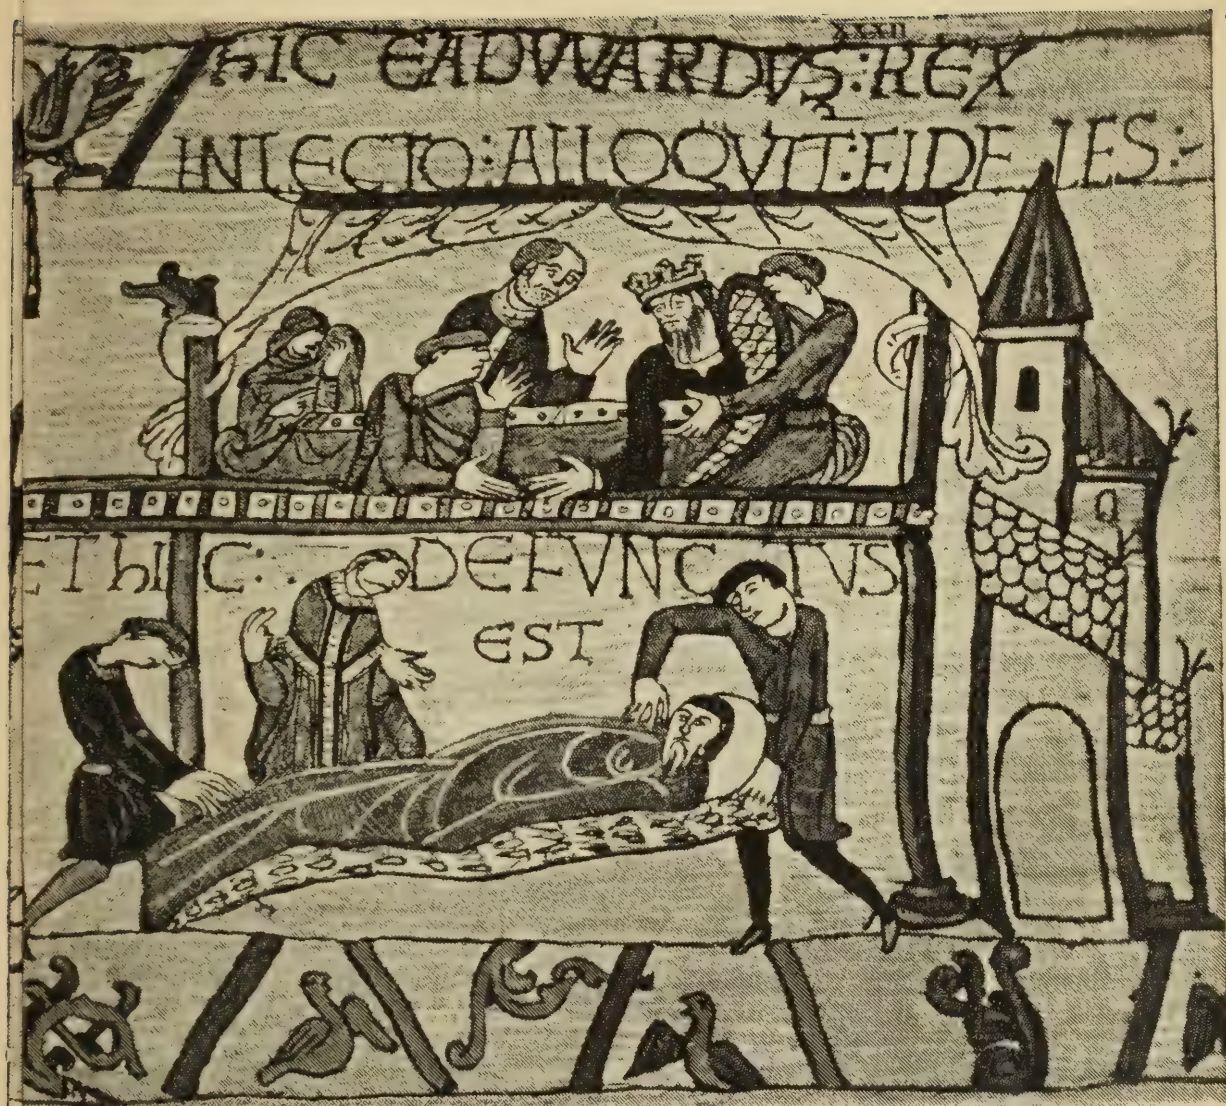 XXXII
hIC EADVVARDVS:REX
INLECTO:ALLOQVIT:FIDELES:
ET hIC: DEFVNCTVS
EST